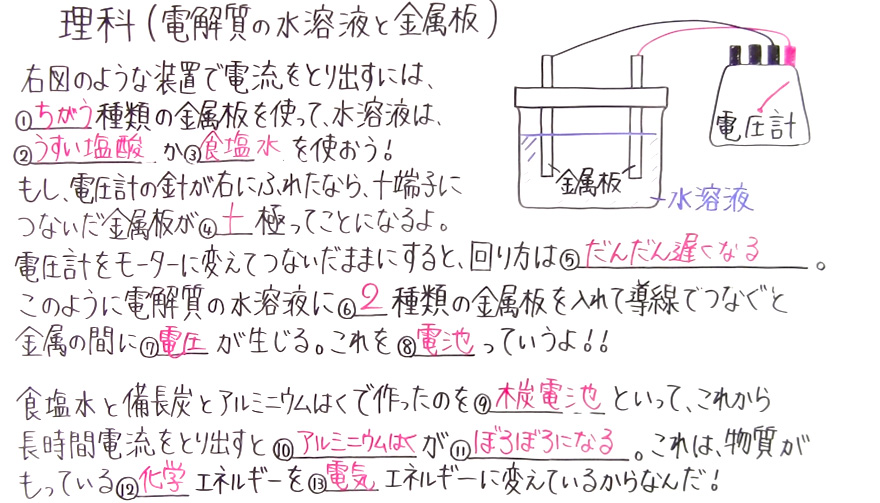 理科(電解質の水溶液と金属板)
右図のような装置で電流をとり出すには、
①ちがう種類の金属板を使って、水溶液は、
②うすい塩酸か③食塩水を使おう!
もし、電圧計の針が右にふれたなら、十端子に
つないだ金属板が④十極ってことになるよ。
電圧計をモーターに変えてつないだままにすると、回り方は⑤だんだん遅くなる。
このように電解質の水溶液に⑥2種類の金属板を入れて導線でつなぐと
金属の間に⑦電圧が生じる。これを⑧電池っていうよ!!
食塩水と備長炭とアルミニウムはくで作ったのを⑨木炭電池といって、これから
長時間電流をとり出すと⑩アルミニウムはくが⑪ぼろぼろになる。これは、物質が
もっている⑫化学エネルギーを⑬電気エネルギーに変えているからなんだ!
電圧計
金属板
水溶液